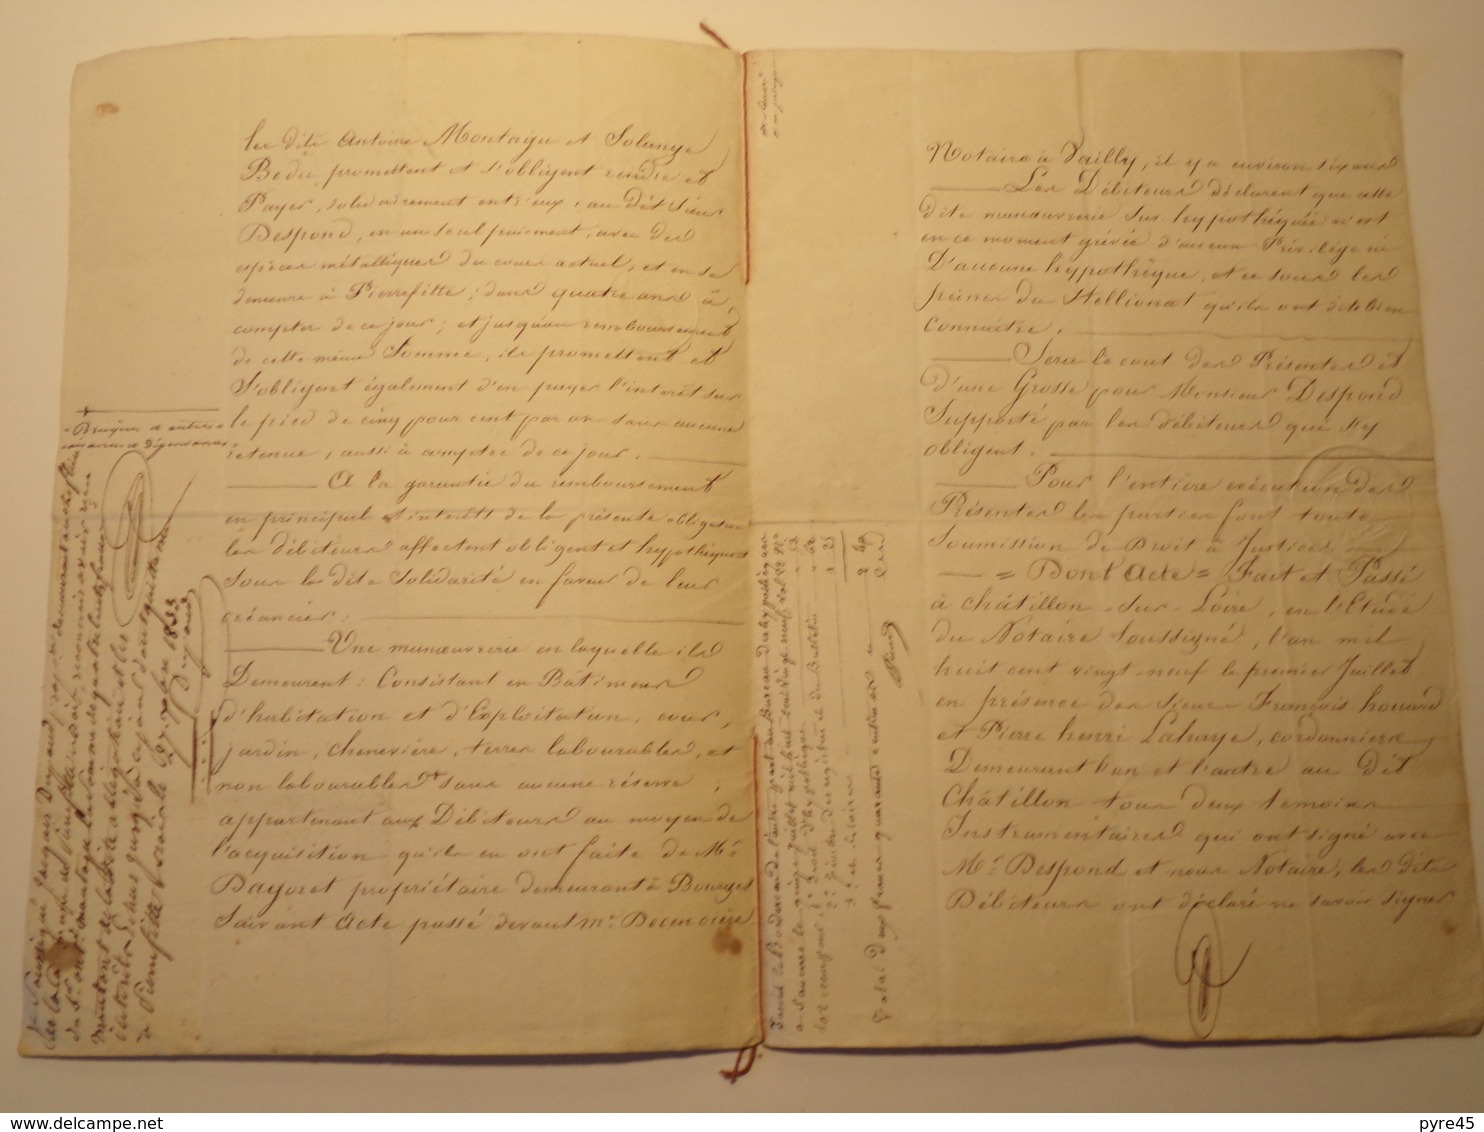 les dits Antoine Montagu et Solange
Bedu promettent et s'obligent rendre et
Payer, solidairement entr'eux, au dit Sieur
Despond, en un seul paiement, avec des
espèces métalliques du cours actuel, et en sa
demeure à Pierrefitte, dans quatre ans à
compter de ce jour; et jusqu'au remboursement
de cette même Somme, ils promettent et
S'obligent également d'en payer l'interêt sur
le pied de cinq pour cent par an sans aucune
retenue, aussi à compter de ce jour.
A la garantie du remboursement
en principal et interêts de la présente obligation
les débiteurs affectent obligent et hypothèquent
Sous la dite Solidarité en faveur de leur
créancier:
Une manœuvrerie en laquelle ils
Demeurent: Consistant en Batimens
d'habitation et d'Exploitation, cour,
jardin, chenevière, terres labourables, et
non labourables sans aucune réserve;
appartenant aux Débiteurs au moyen de
l'acquisition qu'ils en ont faite de Mr
Dayoret propriétaire demeurant à Bourges
Suivant Acte passé devant Mr
Bruyères et autres
Je Soussigné Jacques
du Sr ant. montagu la Somme de quatre
montant de l'obligation et les
à Pierrefitte le 1833
Notaire à Vailly, il y a environ six ans
Les Débiteurs déclarent que cette
dite manœuvrerie sus hypothéquée n'est
en ce moment grévée d'aucun Privilège ni
D'aucune hypothèque, et ce sous les
peines du Stellionat qu'ils ont dit bien
connaitre.
Sera le cout des Présentes et
D'une Grosse pour Monsieur Despond
Supporté par les débiteurs qui s'y
obligent.
Pour l'entière exécution des
Présentes les parties font toute
Soumission de Droit à Justice.
= Dont Acte = Fait et Passé
à Châtillon-sur-Loire, en l'Etude
du Notaire Soussigné, l'an mil
huit cent vingt-neuf le premier Juillet
en présence des Sieurs François houard
et Pierre henri Lahaye, cordonniers
Demeurant l'un et l'autre au dit
Châtillon tous deux temoins
Instrumentaires qui ont signé avec
Mr Despond et nous Notaire, les dits
Débiteurs ont déclaré ne savoir signer
Total deux francs quarante
pyre45